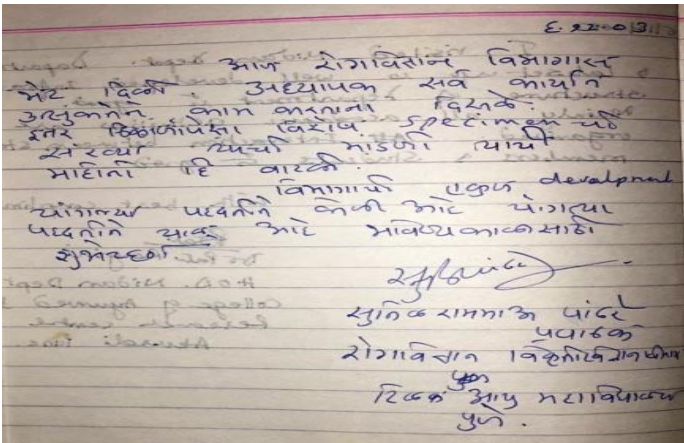 आज रोगविज्ञान विभागास
भेट दिली अध्यापक सर्व कार्यात
उत्सुकतेने काम करताना दिसले.
इतर ठिकाणांपेक्षा विशेष specimen ची
संख्या त्याची मांडणी त्याची
माहीती हि वाटली.
विभागाची एकूण development
चांगल्या पद्धतीने केली आहे योग्य
पद्धतीने चालू आहे भविष्यकाळासाठी
शुभेच्छा
सुनिल रामभाऊ पांडे
रोगविज्ञान
टिळक आयु महाविद्यालय
पुणे.